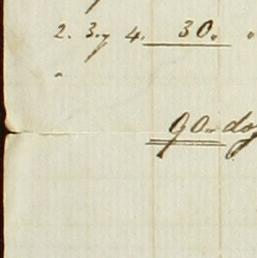 2. 3. y 4. 30. "
"
90. do